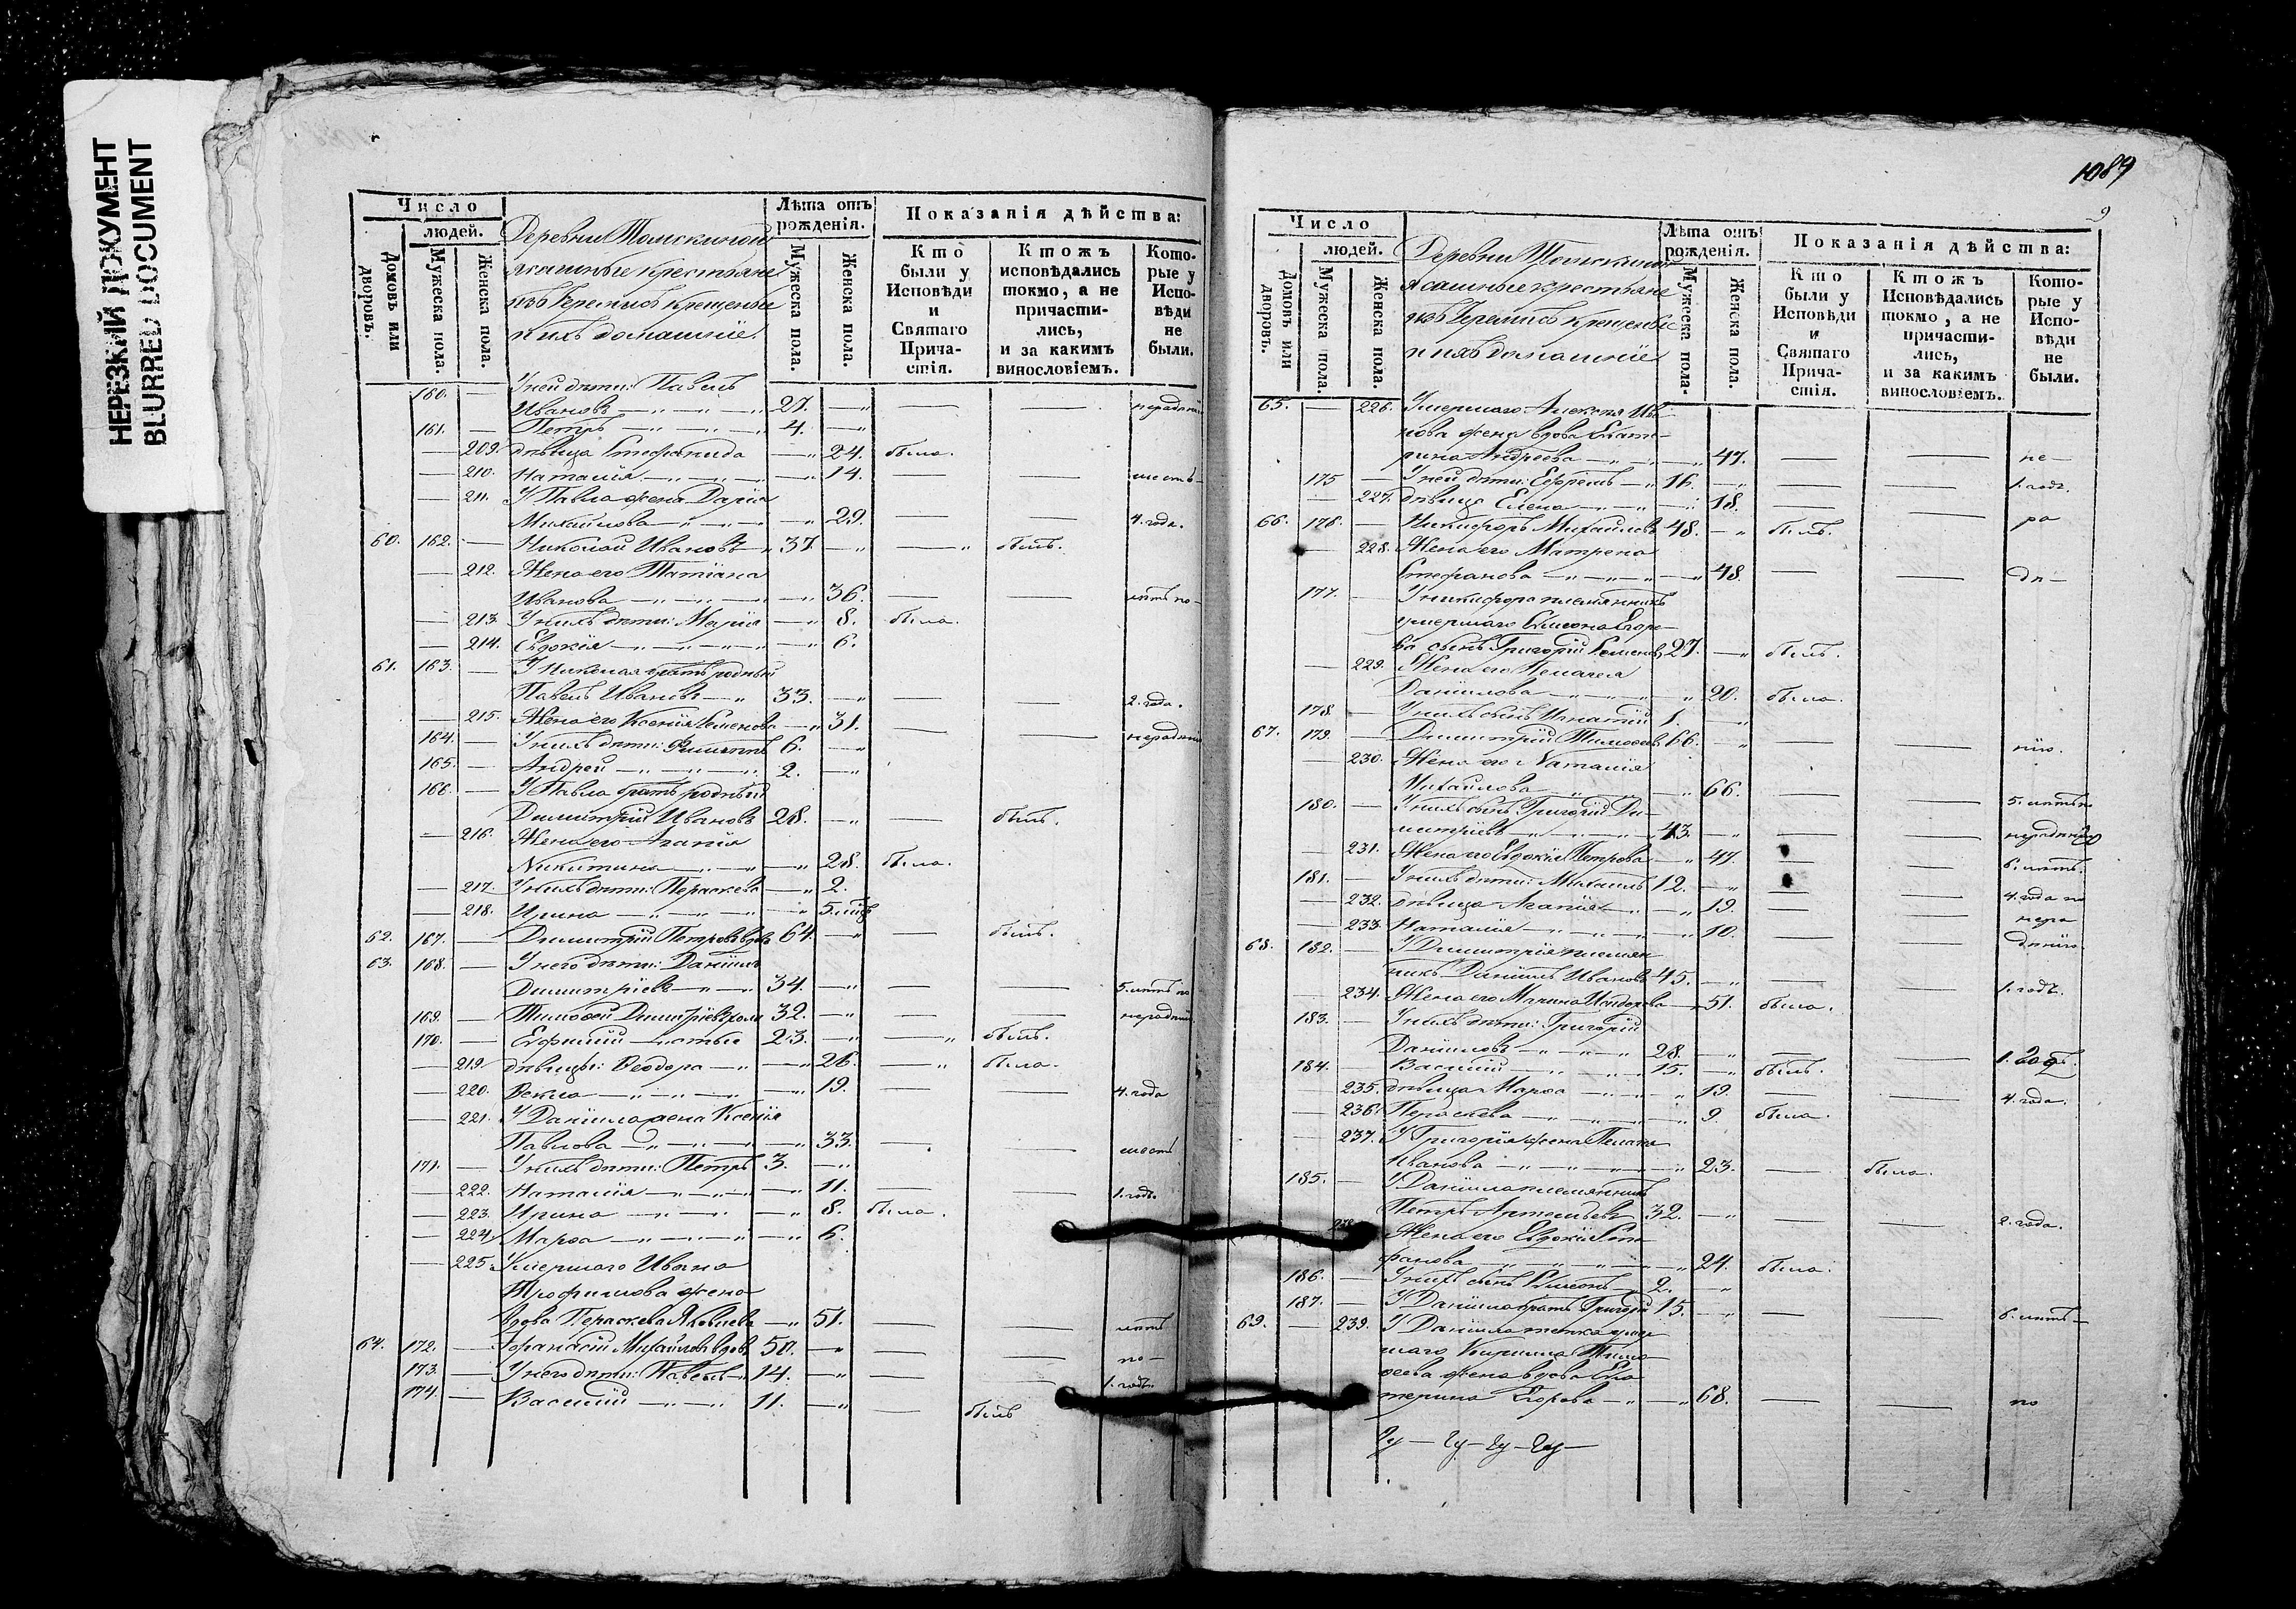 НЕРЕЗКИЙ ДОКУМЕНТ
BLURRED DOCUMENT
Число
людей.
Домовъ или дворовъ.
Мужеска пола.
Женска пола.
Деревни Томскиной
Ясашные крестьяне
изъ Черемисъ крещеные
и ихъ домашніе.
Лѣта отъ рожденія.
Мужеска пола.
Женска пола.
Показанія дѣйства:
Кто были у Исповѣди и Святаго Причастія.
Ктожъ исповѣдались токмо, а не причастились, и за какимъ винословіемъ.
Которые у Исповѣди не были.
160. — У ней дѣти: Павелъ
Ивановъ 27. —
161. — Петръ 4. —
— 209. дѣвица Стефанида — 24. была.
— 210. Наталія — 14.
— 211. У Павла жена Дарія
Михайлова — 29. 4. года.
60. 162. — Николай Ивановъ 37. — былъ.
— 212. Жена его Татіана
Иванова — 36. лѣтъ по
— 213. У нихъ дѣти: Марія — 8. была.
— 214. Евдокія — 6.
61. 163. — У Николая братъ родный
Павелъ Ивановъ 33. — 2. года.
— 215. Жена его Ксенія Семенова — 31.
164. — У нихъ дѣти: Филиппъ 6. —
165. — Андрей 2. —
166. — У Павла братъ родный
Димитрій Ивановъ 28. — былъ.
— 216. Жена его Агапія
Никитина — 28. была.
— 217. У нихъ дѣти: Параскева — 2.
— 218. Ирина — 5. мѣц
62. 167. — Димитрій Петровъ вдовъ 64. — былъ.
63. 168. — У него дѣти: Даніилъ
Димитріевъ 34. — 5. лѣтъ по
169. — Тимоѳей Димитріевъ холо 32. — нерадѣнію
170. — Ефимій —стый 23. — былъ.
— 219. дѣвицы: Ѳеодора — 26. была.
— 220. Ѳекла — 19. 4. года
— 221. У Даніила жена Ксенія
Павлова — 33.
171. — У нихъ дѣти: Петръ 3. —
— 222. Наталія — 11. 1. годъ.
— 223. Ирина — 8. была.
— 224. Марѳа — 6.
— 225. Умершаго Ивана
Трофимова жена
вдова Параскева Яковлева — 51. лѣтъ
64. 172. — Афанасій Михайловъ вдовъ 50. — по
173. — У него дѣти: Павелъ 14. — 1. годъ.
174. — Василій 11. — былъ
1089
9
Число
людей.
Домовъ или дворовъ.
Мужеска пола.
Женска пола.
Деревни Томскиной
Ясашные крестьяне
изъ Черемисъ крещеные
и ихъ домашніе
Лѣта отъ рожденія.
Мужеска пола.
Женска пола.
Показанія дѣйства:
Кто были у Исповѣди и Святаго Причастія.
Ктожъ Исповѣдались токмо, а не причастились, и за какимъ винословіемъ.
Которые у Исповѣди не были.
65. — 226. Умершаго Алексѣя Ива
нова жена вдова Екате
рина Андреева — 47. не
175 — У ней дѣти: Ефремъ 16. — 1. годъ.
— 227. дѣвица Елена — 18.
66. 176. — Никифоръ Михайловъ 48. — былъ. ра
— 228. Жена его Матрена
Стефанова — 48. дѣ
177. — У Никифора племянникъ
умершаго Симеона Егоро
ва сынъ Григорій Семеновъ 27. — былъ.
— 229. Жена его Пелагея
Данилова 20. была.
178. — У нихъ сынъ Игнатій 1. —
67. 179. — Димитрій Тимоѳеевъ 66. — нію.
— 230. Жена его Наталія
Михайлова — 66.
180. — У нихъ сынъ Григорій Ди
митріевъ 43. — нерадѣнію
— 231. Жена его Евдокія Петрова — 47. 6. лѣтъ.
181. — У нихъ дѣти: Михаилъ 12. —
— 232. дѣвица Агапія — 19. 4. года по
— 233. Наталія — 10. нера
68. 182. — У Димитрія племян дѣнію
никъ Даніилъ Ивановъ 45. —
— 234. Жена его Марина Исидорова — 51. была. 1. годъ.
183. — У нихъ дѣти: Григорій
Даніиловъ 28. — 1. годъ.
184. — Василій 15. — былъ.
— 235. дѣвица Марѳа 19. 4. года.
— 236. Параскева 9. была.
— 237. У Григорія жена Пелагія
Иванова — 23. была.
185. — У Даніила племянникъ
Петръ Артемьевъ 32. — 2. года.
238. Жена его Евдокія Сте
фанова — 24. была.
186. — У нихъ сынъ Симеонъ 2. —
187. — У Даніила братъ Григорій 15. — 6. лѣтъ
69. — 239. У Даніила тетка умер
шаго Кирилла Тимо
ѳеева жена вдова Ека
терина Егорова — 68. по